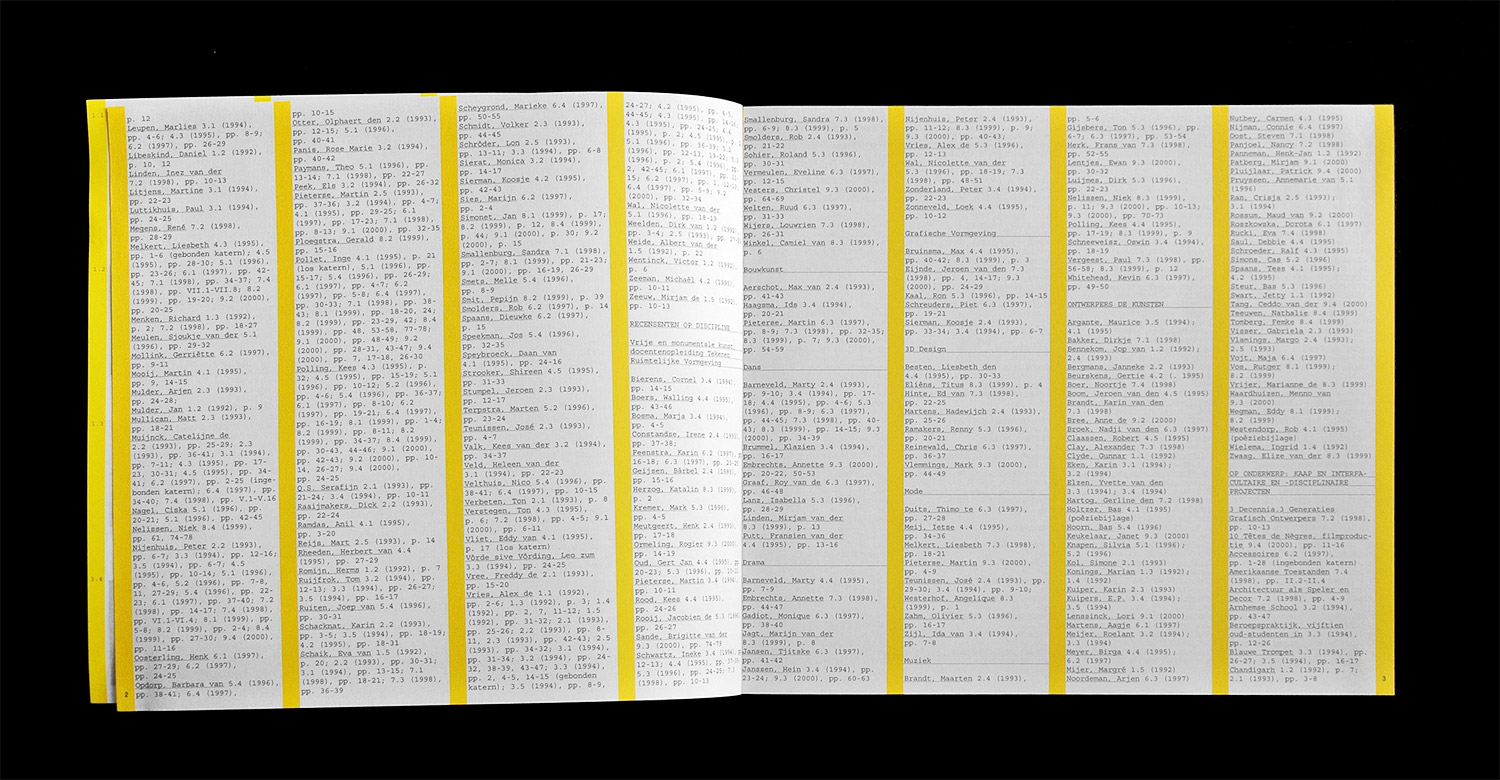 1.1
1.2
1.3
1.4
p. 12
Leupen, Marlies 3.1 (1994),
pp. 4-6; 4.3 (1995), pp. 8-9;
6.2 (1997), pp. 26-29
Libeskind, Daniel 1.2 (1992),
p. 10, 12
Linden, Inez van der
7.2 (1998), pp. 10-13
Litjens, Martine 3.1 (1994),
pp. 22-23
Luttikhuis, Paul 3.1 (1994),
pp. 24-25
Megens, René 7.2 (1998),
pp. 28-29
Melkert, Liesbeth 4.3 (1995),
pp. 1-6 (gebonden katern); 4.5
(1995), pp. 28-30; 5.1 (1996),
pp. 23-26; 6.1 (1997), pp. 42-
45; 7.1 (1998), pp. 34-37; 7.4
(1998), pp. VII.1-VII.8; 8.2
(1999), pp. 19-20; 9.2 (2000),
pp. 20-25
Menken, Richard 1.3 (1992),
p. 2; 7.2 (1998), pp. 18-27
Meulen, Sjoukje van der 5.1
(1996), pp. 29-32
Mollink, Gerriëtte 6.2 (1997),
pp. 9-11
Mooij, Martin 4.1 (1995),
pp. 9, 14-15
Mulder, Arjen 2.3 (1993),
pp. 24-28;
Mulder, Jan 1.2 (1992), p. 9
Mullican, Matt 2.3 (1993),
pp. 18-21
Muijnck, Catelijne de
2.2 (1993), pp. 25-29; 2.3
(1993), pp. 36-41; 3.1 (1994),
pp. 7-11; 4.3 (1995), pp. 17-
23, 30-31; 4.5 (1995), pp. 34-
61; 4.2 (1995), pp. 2-25 (inge-
bonden katern); 6.4 (1997), pp.
34-40; 7.4 (1998), pp. V.1-V.16
Nagel, Ciska 5.1 (1996), pp.
20-21; 5.1 (1996), pp. 42-45
Nelissen, Niek 8.4 (1999),
pp. 61, 74-78
Nijenhuis, Peter 2.2 (1993),
pp. 6-7; 3.3 (1994), pp. 12-16;
3.5 (1994), pp. 6-7; 4.5
(1995), pp. 10-14; 5.1 (1996),
pp. 4-6, 5.2 (1996), pp. 7-8,
11, 27-29; 5.4 (1996), pp. 22-
23; 6.1 (1997), pp. 37-40; 7.2
(1998), pp. 14-17; 7.4 (1998),
pp. VI.1-VI.4; 8.1 (1999), pp.
5-8; 8.2 (1999), pp. 2-4; 8.4
(1999), pp. 27-30; 9.4 (2000),
pp. 11-16
Oosterling, Henk 6.1 (1997),
pp. 27-29; 6.2 (1997),
pp. 24-25
Opdorp, Barbara van 5.4 (1996),
pp. 38-41; 6.4 (1997),
2
pp. 10-15
Otter, Olphaert den 2.2 (1993),
pp. 12-15; 5.1 (1996),
pp. 40-41
Panis, Rose Marie 3.2 (1994),
pp. 40-42
Paymans, Theo 5.1 (1996), pp.
13-14; 7.1 (1998), pp. 22-27
Peek, Els 3.2 (1994), pp. 26-32
Pieterse, Martin 2.5 (1993),
pp. 37-36; 3.2 (1994), pp. 4-7;
4.1 (1995), pp. 29-25; 6.1
(1997), pp. 17-23; 7.1 (1998),
pp. 8-13; 9.1 (2000), pp. 32-35
Ploegstra, Gerald 8.2 (1999),
pp. 15-16
Pollet, Inge 4.1 (1995), p. 21
(los katern), 5.1 (1996), pp.
15-17; 5.4 (1996), pp. 26-29;
6.1 (1997), pp. 4-7; 6.2
(1997), pp. 5-8; 6.4 (1997),
pp. 30-33; 7.1 (1998), pp. 38-
43; 8.1 (1999), pp. 18-20, 24;
8.2 (1999), pp. 23-29, 42; 8.4
(1999), pp. 48, 53-58, 77-78;
9.1 (2000), pp. 48-49; 9.2
(2000), pp. 28-31, 43-47; 9.4
(2000), pp. 7, 17-18, 26-30
Polling, Kees 4.3 (1995), p.
32; 4.5 (1995), pp. 15-19; 5.1
(1996), pp. 10-12; 5.2 (1996),
pp. 4-6; 5.4 (1996), pp. 36-37;
6.1 (1997), pp. 8-10; 6.2
(1997), pp. 19-21; 6.4 (1997),
pp. 16-19; 8.1 (1999), pp. 1-4;
8.2 (1999), pp. 8-11; 8.2
(1999), pp. 34-37; 8.4 (1999),
pp. 30-43, 44-46; 9.1 (2000),
pp. 42-43; 9.2 (2000), pp. 10-
14, 26-27; 9.4 (2000),
pp. 24-25
Q.S. Serafijn 2.1 (1993), pp.
21-24; 3.4 (1994), pp. 10-11
Raaijmakers, Dick 2.2 (1993),
pp. 22-24
Ramdas, Anil 4.1 (1995),
pp. 3-20
Reijs, Mart 2.5 (1993), p. 14
Rheeden, Herbert van 4.4
(1995), pp. 27-29
Romijn, Herms 1.2 (1992), p. 7
Ruijfrok, Tom 3.2 (1994), pp.
12-13; 3.3 (1994), pp. 26-27;
3.5 (1994), pp. 16-17
Ruiten, Joep van 5.4 (1996),
pp. 30-31
Schacknat, Karin 2.2 (1993),
pp. 3-5; 3.5 (1994), pp. 18-19;
4.2 (1995), pp. 18-31
Schaik, Eva van 1.5 (1992),
p. 20; 2.2 (1993), pp. 30-31;
3.1 (1994), pp. 13-15; 7.1
(1998), pp. 18-21; 7.3 (1998),
pp. 36-39
Scheygrond, Marieke 6.4 (1997),
pp. 50-55
Schmidt, Volker 2.3 (1993),
pp. 44-45
Schröder, Lon 2.5 (1993),
pp. 13-11; 3.3 (1994), pp. 6-8
Sierat, Monica 3.2 (1994),
pp. 14-17
Sierman, Koosje 4.2 (1995),
pp. 42-43
Sies, Marijn 6.2 (1997),
pp. 2-4
Simonet, Jan 8.1 (1999), p. 17;
8.2 (1999), p. 12, 8.4 (1999),
p. 44; 9.1 (2000), p. 30; 9.2
(2000), p. 15
Smallenburg, Sandra 7.1 (1998),
pp. 2-7; 8.1 (1999), pp. 21-23;
9.1 (2000), pp. 16-19, 26-29
Smets, Melle 5.4 (1996),
pp. 8-9
Smit, Pepijn 8.2 (1999), p. 39
Smolders, Rob 6.2 (1997), p. 14
Spaans, Dieuwke 6.2 (1997),
p. 15
Speekman, Jos 5.4 (1996),
pp. 32-35
Speybroeck, Daan van
4.1 (1995), pp. 24-16
Strooker, Shireen 4.5 (1995),
pp. 31-33
Stumpel, Jeroen 2.3 (1993),
pp. 12-17
Terpstra, Marten 5.2 (1996),
pp. 23-24
Teunissen, José 2.3 (1993),
pp. 4-7
Valk, Kees van der 3.2 (1994),
pp. 34-37
Veld, Heleen van der
3.1 (1994), pp. 22-23
Velthuis, Nico 5.4 (1996), pp.
38-41; 6.4 (1997), pp. 10-15
Verbeten, Ton 2.1 (1993), p. 8
Verstegen, Ton 4.3 (1995),
p. 6; 7.2 (1998), pp. 4-5; 9.1
(2000), pp. 6-11
Vliet, Eddy van 4.1 (1995),
p. 17 (los katern)
Vörde sive Vörding, Leo zum
3.3 (1994), pp. 24-25
Vree, Freddy de 2.1 (1993),
pp. 15-20
Vries, Alex de 1.1 (1992),
pp. 2-6; 1.3 (1992), p. 3; 1.4
(1992), pp. 2, 7, 11-12; 1.5
(1992), pp. 31-32; 2.1 (1993),
pp. 25-26; 2.2 (1993), pp. 8-
11, 2.3 (1993), pp. 42-43; 2.5
(1993), pp. 34-32; 3.1 (1994),
pp. 31-34; 3.2 (1994), pp. 24-
32, 38-39, 43-47; 3.3 (1994),
pp. 2, 4-5, 14-15 (gebonden
katern); 3.5 (1994), pp. 8-9,
Wal, Nicolette van der
5.1 (1996), pp. 18-19
Weelden, Dirk van 1.2 (1992)
Weide, Albert van der
1.5 (1992), p. 22
Wentinck, Victor 1.2 (1992),
p. 6
Zeeman, Michaël 4.2 (1995),
pp. 10-11
Zeeuw, Mirjam de 1.5 (1992),
pp. 10-13
RECENSENTEN OP DISCIPLINE
Vrije en monumentale kunst,
docentenopleiding Tekenen
Ruimtelijke Vormgeving
Bierens, Cornel 3.4 (1994),
pp. 14-15
Boers, Walling 4.4 (1995),
pp. 43-46
Bosma, Marja 3.4 (1994),
pp. 4-5
Constandse, Irene 2.4 (1993),
pp. 37-38;
Feenstra, Karin 6.2 (1997), pp.
16-18; 6.3 (1997), pp. 21-25
Geijsen, Bärbel 2.4 (1993),
pp. 15-16
Herzog, Katalin 8.3 (1999),
p. 2
Kremer, Mark 5.3 (1996),
pp. 4-5
Meutgeert, Henk 2.4 (1993),
pp. 17-18
Ormeling, Rogier 9.3 (2000),
pp. 14-19
Oud, Gert Jan 4.4 (1995), pp.
Pieterse, Martin 3.4 (1994),
pp. 10-11
Rood, Kees 4.4 (1995),
pp. 24-26
Rooij, Jacobien de 5.3 (1996),
pp. 26-27
Sande, Brigitte van der
9.3 (2000), pp. 74-79
Schwartz, Ineke 3.4 (1994),
(1998), pp. 10-13
Smallenburg, Sandra 7.3 (1998),
pp. 6-9; 8.3 (1999), p. 5
Smolders, Rob 2.4 (1993),
pp. 21-22
Sohier, Roland 5.3 (1996),
pp. 30-31
Vermeulen, Eveline 6.3 (1997),
pp. 12-15
Vesters, Christel 9.3 (2000),
pp. 64-69
Welten, Ruud 6.3 (1997),
pp. 31-33
Wijers, Louwrien 7.3 (1998),
pp. 26-31
Winkel, Camiel van 8.3 (1999),
p. 6
Bouwkunst
Aerschot, Max van 2.4 (1993),
pp. 41-43
Haagsma, Ids 3.4 (1994),
pp. 20-21
Pieterse, Martin 6.3 (1997),
pp. 8-9; 7.3 (1998), pp. 32-35;
8.3 (1999), p. 7; 9.3 (2000),
pp. 54-59
Dans
Barneveld, Marty 2.4 (1993),
pp. 9-10; 3.4 (1994), pp. 17-
18; 4.4 (1995), pp. 4-6; 5.3
(1996), pp. 8-9; 6.3 (1997),
pp. 44-45; 7.3 (1998), pp. 40-
43; 8.3 (1999), pp. 14-15; 9.3
(2000), pp. 34-39
Brummel, Klazien 3.4 (1994),
pp. 16-17
Embrechts, Annette 9.3 (2000),
pp. 20-22, 50-53
Graaf, Roy van de 6.3 (1997),
pp. 46-48
Lanz, Isabella 5.3 (1996),
pp. 28-29
Linden, Mirjam van der
8.3 (1999), p. 11
Putt, Fransien van der
4.4 (1995), pp. 13-16
Drama
Barneveld, Marty 4.4 (1995),
pp. 7-9
Embrechts, Annette 7.3 (1998),
pp. 44-47
Gadiot, Monique 6.3 (1997),
pp. 38-40
Jagt, Marijn van der
8.3 (1999), p. 8
Jansen, Tjitske 6.3 (1997),
pp. 41-42
Janssen, Hein 3.4 (1994), pp.
23-24; 9.3 (2000), pp. 60-63
Nijenhuis, Peter 2.4 (1993),
pp. 11-12; 8.3 (1999), p. 9;
9.3 (2000), pp. 40-43;
Vries, Alex de 5.3 (1996),
pp. 12-13
Wal, Nicolette van der
5.3 (1996), pp. 18-19; 7.3
(1998), pp. 48-51
Zonderland, Peter 3.4 (1994),
pp. 22-23
Zonneveld, Loek 4.4 (1995),
pp. 10-12
Grafische Vormgeving
Bruinsma, Max 4.4 (1995),
pp. 40-42; 8.3 (1999), p. 3
Rijnde, Jeroen van den 7.3
(1998), pp. 4, 14-17; 9.3
(2000), pp. 24-29
Kaal, Ron 5.3 (1996), pp. 14-15
Schreuders, Piet 6.3 (1997),
pp. 19-21
Sierman, Koosje 2.4 (1993),
pp. 33-34; 3.4 (1994), pp. 6-7
3D Design
Besten, Liesbeth den
4.4 (1995), pp. 30-33
Eliëns, Titus 8.3 (1999), p. 4
Hinte, Ed van 7.3 (1998),
pp. 22-25
Martens, Hadewijch 2.4 (1993),
pp. 25-26
Ramakers, Renny 5.3 (1996),
pp. 20-21
Reinewald, Chris 6.3 (1997),
pp. 36-37
Vlemmings, Mark 9.3 (2000),
pp. 44-49
Mode
Duits, Thimo te 6.3 (1997),
pp. 27-28
Meij, Ietse 4.4 (1995),
pp. 34-36
Melkert, Liesbeth 7.3 (1998),
pp. 18-21
Pieterse, Martin 9.3 (2000),
pp. 4-9
Teunissen, José 2.4 (1993), pp.
29-30; 3.4 (1994), pp. 9-10;
Westerhof, Angelique 8.3
(1999), p. 1
Zahm, Olivier 5.3 (1996),
pp. 16-17
Zijl, Ida van 3.4 (1994),
pp. 7-8
Muziek
Brandt, Maarten 2.4 (1993),
pp. 5-6
Gijsbers, Ton 5.3 (1996), pp.
6-7; 6.3 (1997), pp. 53-54
Herk, Frans van 7.3 (1998),
pp. 52-55
Lentjes, Ewan 9.3 (2000),
pp. 30-32
Luijmes, Dirk 5.3 (1996),
pp. 22-23
Nelissen, Niek 8.3 (1999),
p. 11; 9.3 (2000), pp. 10-13;
9.3 (2000), pp. 70-73
Polling, Kees 4.4 (1995),
pp. 17-19; 8.3 (1999), p. 9
Schneeweisz, Oswin 3.4 (1994),
pp. 18-19
Vergeest, Paul 7.3 (1998), pp.
56-58; 8.3 (1999), p. 12
Whitehead, Kevin 6.3 (1997),
pp. 49-50
ONTWERPERS DE KUNSTEN
Argante, Maurice 3.5 (1994);
4.1 (1995)
Bakker, Dirkje 7.1 (1998)
Bennekom, Jop van 1.2 (1992);
2.4 (1993)
Bergmans, Janneke 2.2 (1993)
Beurskens, Gertie 4.2 (1995)
Boer, Noortje 7.4 (1998)
Boom, Jeroen van den 4.5 (1995)
Brandt, Karin van den
7.3 (1998)
Bree, Anne de 9.2 (2000)
Broek, Nadji van den 6.3 (1997)
Claassen, Robert 4.5 (1995)
Clay, Alexander 7.3 (1998)
Clyde, Gunnar 1.1 (1992)
Eken, Karin 3.1 (1994);
3.2 (1994)
Elzen, Yvette van den
3.3 (1994); 3.4 (1994)
Hartog, Gerline den 7.2 (1998)
Holtzer, Bas 4.1 (1995)
(poëziebijlage)
Noorn, Bas 5.4 (1996)
Keukelaar, Janet 9.3 (2000)
Knapen, Silvia 5.1 (1996);
5.2 (1996)
Kol, Simone 2.1 (1993)
Konings, Marian 1.3 (1992);
1.4 (1992)
Kuiper, Karin 2.3 (1993)
Kuipers, E.P. 3.4 (1994);
3.5 (1994)
Lenssinck, Lori 9.1 (2000)
Martens, Aagje 6.1 (1997)
Meijer, Roelant 3.2 (1994);
3.3 (1994)
Meyer, Birga 4.4 (1995);
6.2 (1997)
Mijer, Margré 1.5 (1992)
Noordeman, Arjen 6.3 (1997)
Nutbey, Carmen 4.3 (1995)
Nijman, Connie 6.4 (1997)
Oost, Steven 7.1 (1998)
Panjoel, Nancy 7.2 (1998)
Panneman, Henk-Jan 1.2 (1992)
Patberg, Mirjam 9.1 (2000)
Pluijlaar, Patrick 9.4 (2000)
Pruyssen, Annemarie van 5.1
(1996)
Ran, Crisja 2.5 (1993);
3.1 (1994)
Rossum, Maud van 9.2 (2000)
Roszkowska, Dorota 6.1 (1997)
Rucki, Eva 7.4 (1998)
Saul, Debbie 4.4 (1995)
Schroeder, Ralf 4.3 (1995)
Simons, Cas 5.2 (1996)
Spaans, Tess 4.1 (1995);
4.2 (1995)
Steur, Bas 5.3 (1996)
Swart, Jetty 1.1 (1992)
Tang, Ceddo van der 9.4 (2000)
Teeuwen, Nathalie 8.4 (1999)
Tomberg, Femke 8.4 (1999)
Visser, Gabriela 2.3 (1993)
Vlamings, Margo 2.4 (1993);
2.5 (1993)
Vojt, Maja 6.4 (1997)
Vos, Rutger 8.1 (1999);
8.2 (1999)
Vrijer, Marianne de 8.3 (1999)
Waardhuizen, Menno van
9.3 (2000)
Wegman, Eddy 8.1 (1999);
8.2 (1999)
Westendorp, Rob 4.1 (1995)
(poëziebijlage)
Wielema, Ingrid 1.4 (1992)
Zwaag, Elize van der 8.3 (1999)
OP ONDERWERP: KAAP EN INTERFA-
CULTAIRE EN -DISCIPLINAIRE
PROJECTEN
3 Decennia.3 Generaties
Grafisch Ontwerpers 7.2 (1998),
pp. 10-13
10 Têtes de Nègres, filmproduc-
tie 9.4 (2000), pp. 11-16
Accessoires 6.2 (1997),
pp. 1-28 (ingebonden katern)
Amerikaanse Toestanden 7.4
(1998), pp. II.2-II.4
Architectuur als Speler en
Decor 7.2 (1998), pp. 4-9
Arnhemse School 3.2 (1994),
pp. 43-47
Beroepspraktijk, vijftien
oud-studenten in 3.3 (1994),
pp. 12-26
Blauwe Trompet 3.3 (1994), pp.
26-27; 3.5 (1994), pp. 16-17
Chandigarh 1.2 (1992), p. 7;
2.1 (1993), pp. 3-8
3